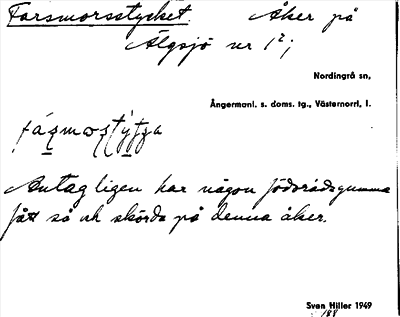 Farsmorsstycket. Åker på
Älgsjö nr 1²;
Nordingrå sn,
Ångermanl. s. doms. tg., Västernorrl. l.
Antagligen har någon födorådsgumma
fått så och skörda på denna åker.
Sven Hiller 1949
188